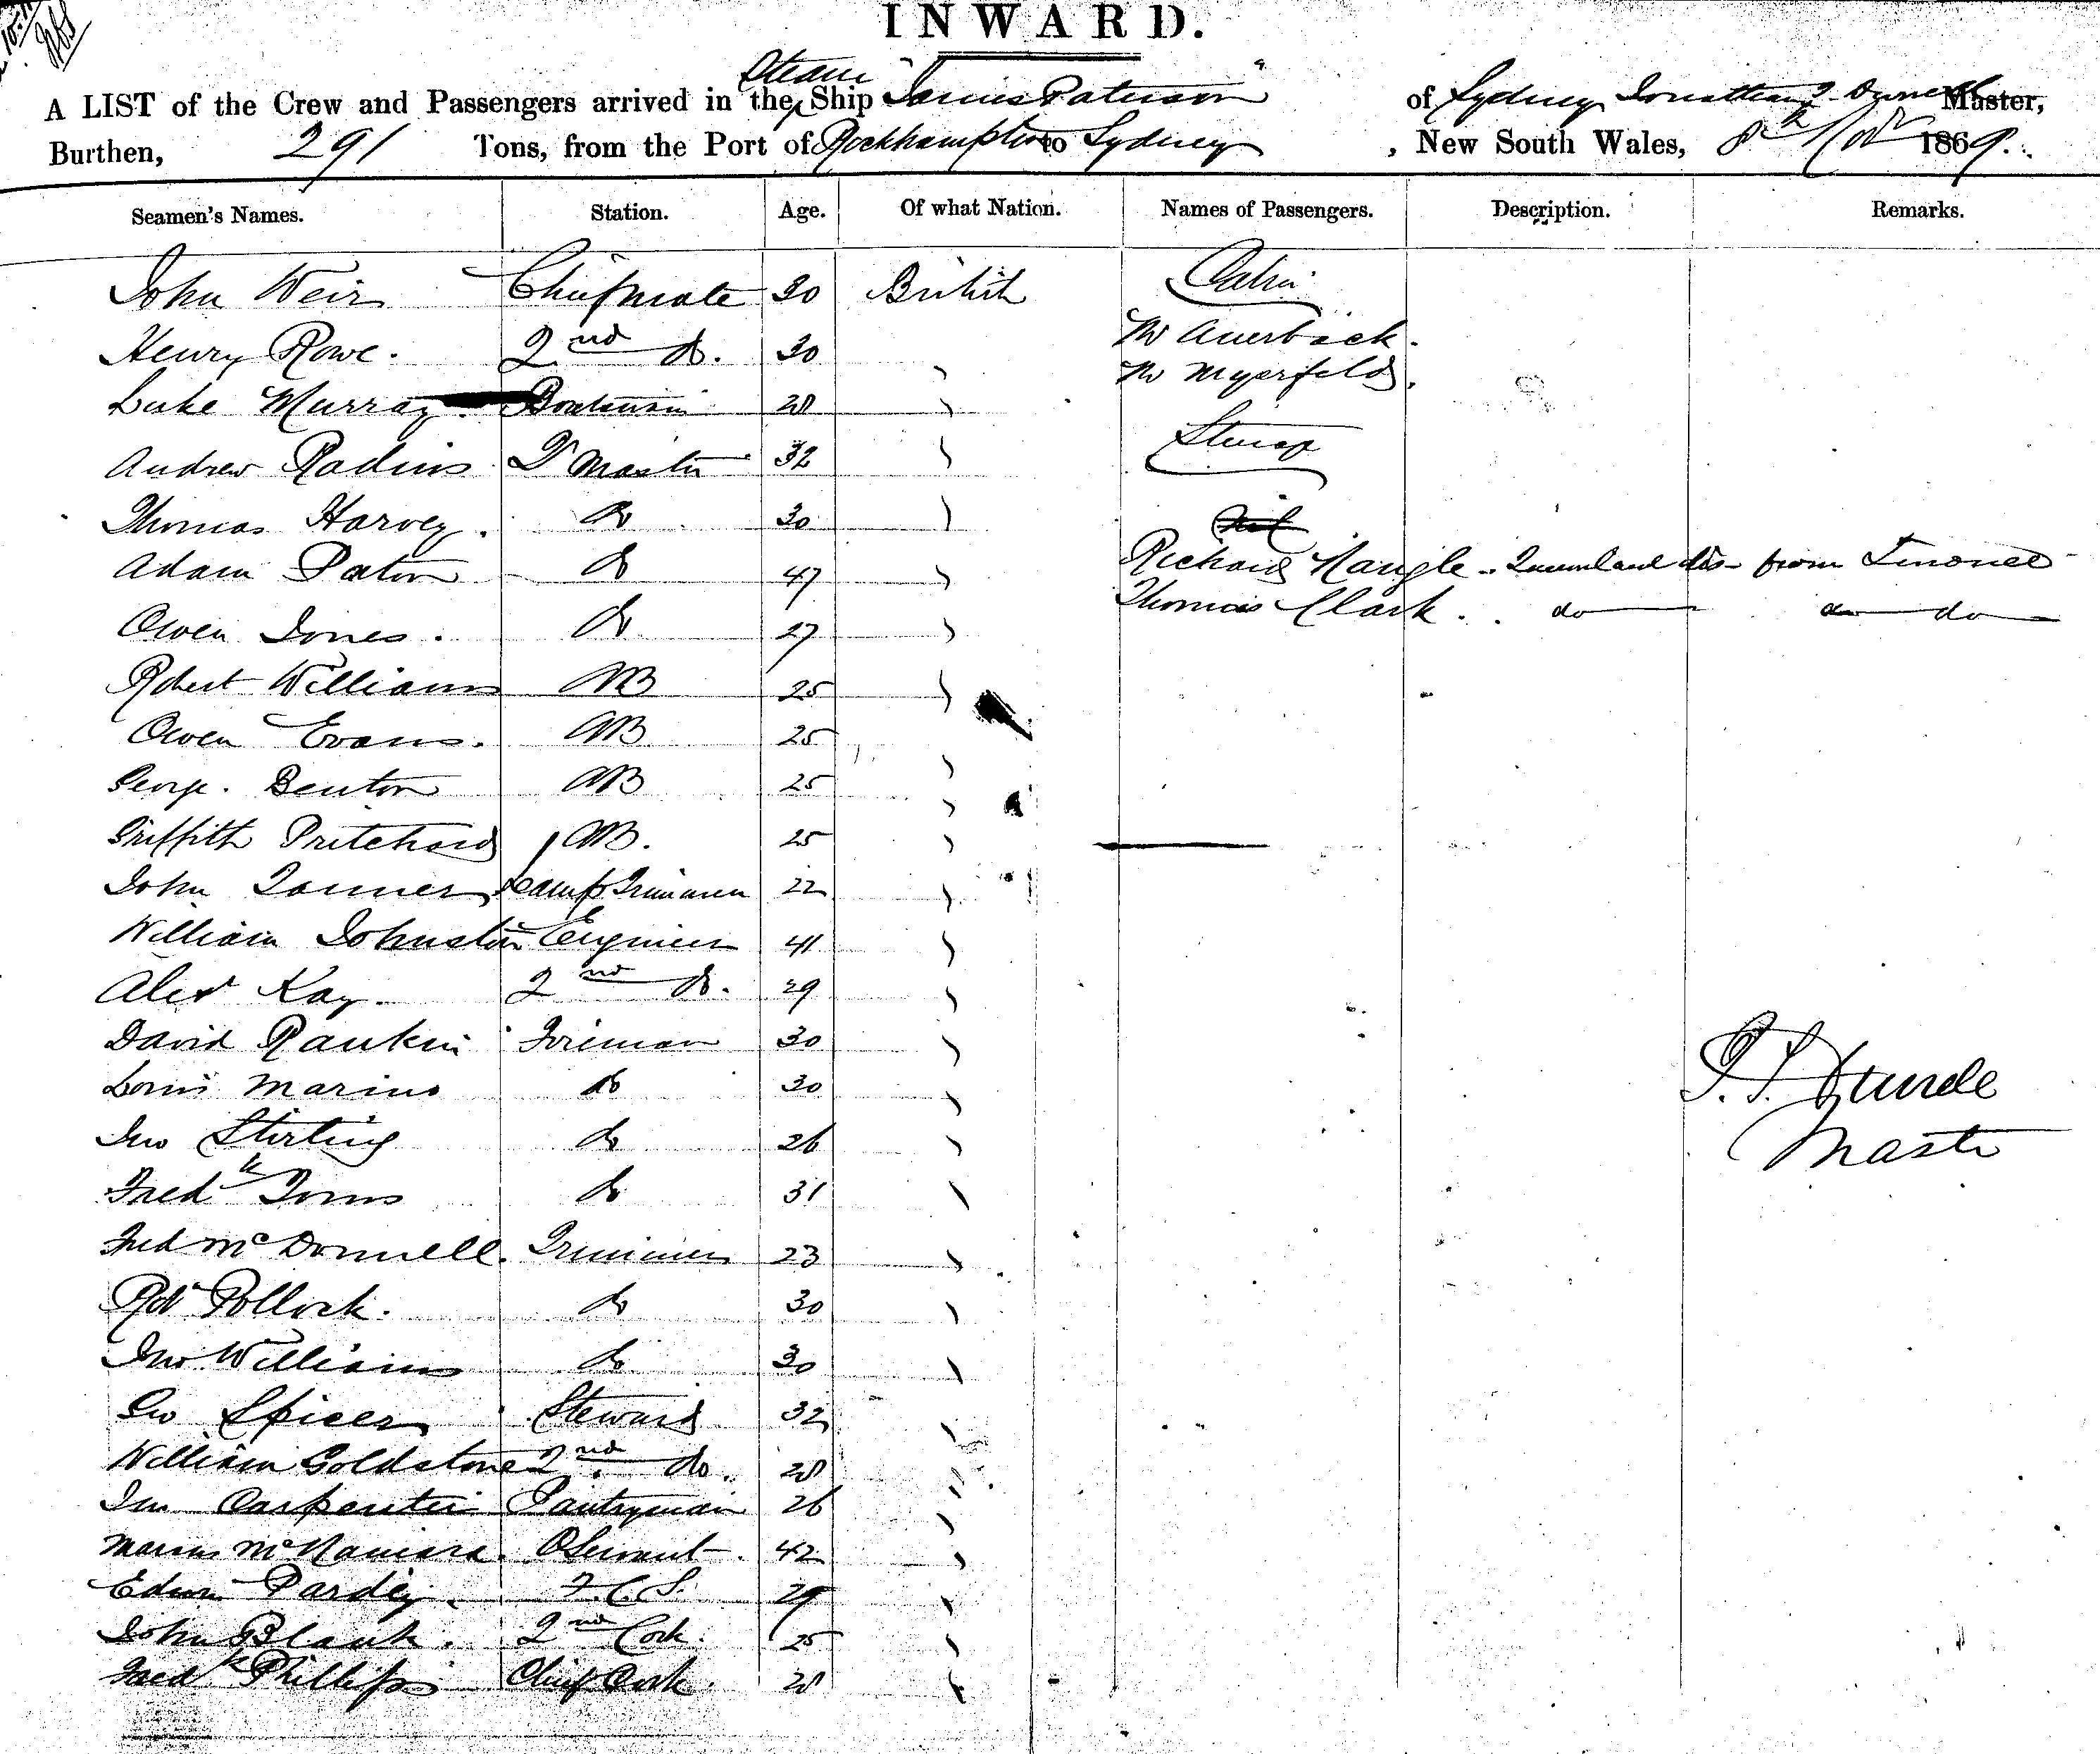 INWARD.
A LIST of the Crew and Passengers arrived in the Steam Ship "James Paterson" of Sydney Master,
Burthen, 291 Tons, from the Port of Rockhampton to Sydney, New South Wales, 8th Novr 1869.
Seamen's Names. Station. Age. Of what Nation. Names of Passengers. Description. Remarks.
John Weir Chief mate 30 British Cabin
Henry Rowe. 2nd do. 30 Mr Auerback.
Mr Myerfeld.
Luke Murray. Boatswain 28
Steerage
Andrew Qr Master 32
Thomas Harvey. do 30 Nil
Adam Paton do 47 Richard Nangle - from
Owen Jones. do 27 Thomas Clark. do do do
Robert Williams AB 25
Owen Evans. AB 25
George. Benton AB 25
Griffith Pritchard AB. 25
John Lamp Trimmer 22
William Johnston Engineer 41
Alexr Kay. 2nd do. 29
David Rankin Fireman 30
Louis Marino do 30
Jno Stirling do 26
Fredk Toms do 31
Fred McDonnell. Trimmer 23
Robt Pollock. do 30
Jno Williams do 30
Geo Spicer Steward 32
William Goldstone 2nd do. 28
Jno Carpenter Pantryman 26
McNamara. 42
Edwin Pardey. F.C.S. 29
John Blank. 2nd Cook. 25
Fredk Phillips Chief Cook. 28
Master